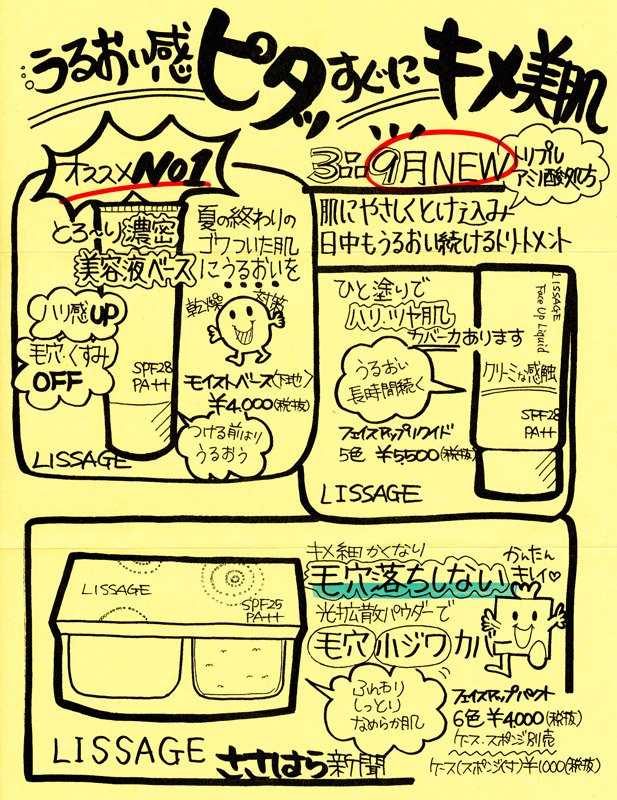 うるおい感ピタッすぐにキメ美肌
オススメNo1
とろ〜り濃密
美容液ベース
夏の終わりの
ゴワついた肌
にうるおいを
乾燥 対策
ハリ感UP
毛穴・くすみ
OFF
SPF28
PA++
モイストベース(下地)
¥4,000(税抜)
つける前より
うるおう
LISSAGE
3品9月NEW
トリプル
アミノ酸処方
肌にやさしくとけ込み
日中もうるおい続けるトリートメント
ひと塗りで
ハリ・ツヤ肌
カバー力あります
うるおい
長時間続く
LISSAGE
Face Up Liquid
クリーミィな感触
SPF28
PA++
フェイスアップリクイド
5色 ¥5,500(税抜)
LISSAGE
LISSAGE
SPF25
PA++
キメ細かくなり
毛穴落ちしない
かんたん
キレイ♡
光拡散パウダーで
毛穴小ジワカバー
ふんわり
しっとり
なめらか肌
フェイスアップパクト
6色 ¥4,000(税抜)
ケース・スポンジ別売
ケース(スポンジ付)¥1000(税抜)
LISSAGE
ささはら新聞